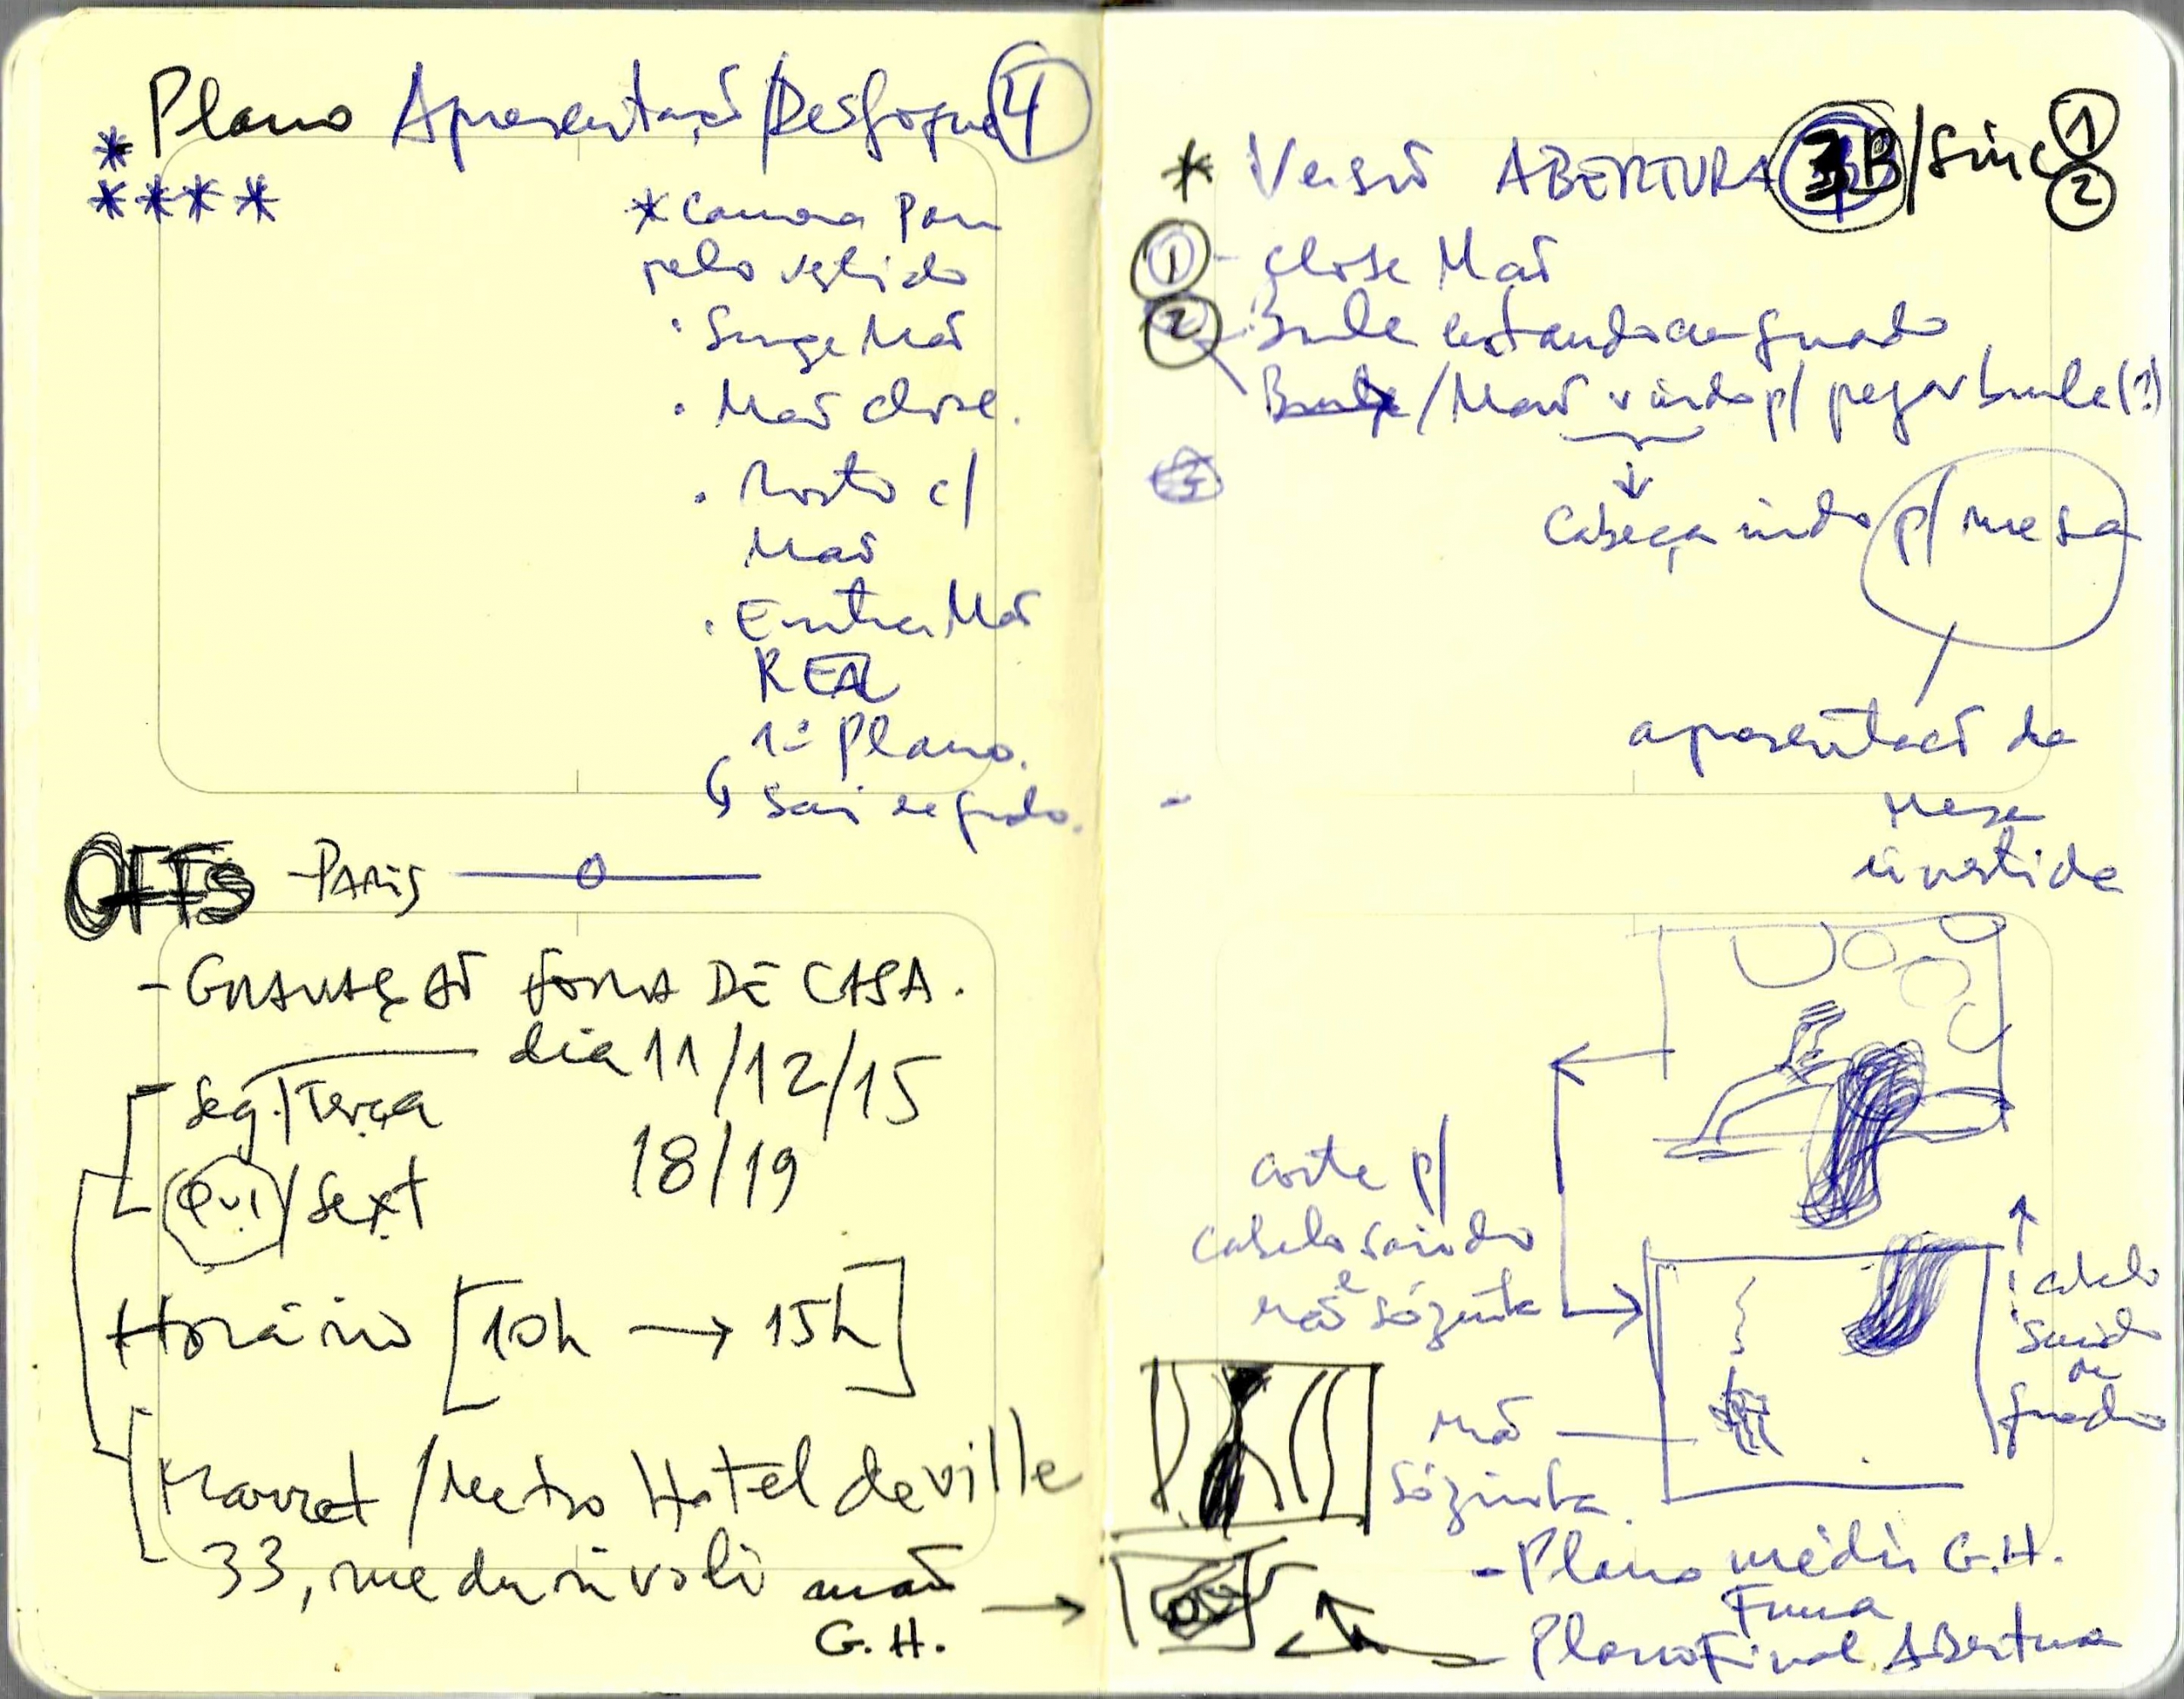 * Plano Apresentação/Desfoque 4
****
* Camera Pan
pelo vestido
· Surge Mão
· Mão close.
· Rosto c/
Mão
· Entra Mão
REAL
1º Plano.
↳ Sai de
OFFs - PARIS
- GRAVAÇÃO FORA DE CASA.
dia 11/12/15
Seg./Terça
18/19
Qui/Sext
Horário [10h → 15h]
/Metro Hotel de ville
33, rue du rivoli mão
G.H. →
* Versão ABERTURA 3B/Sinc 1
2
1 - close Mão
2 Bule entrando em quadro
Bule/Mão vindo p/ pegar bule(?)
↓
Cabeça indo p/ mesa
apresentação da
mesa
invertida
corte p/
cabelo saindo
e
mão sózinha
cabelo
saindo
de
quadro
mão
sózinha.
- Plano médio G.H.
Plano Final Abertura